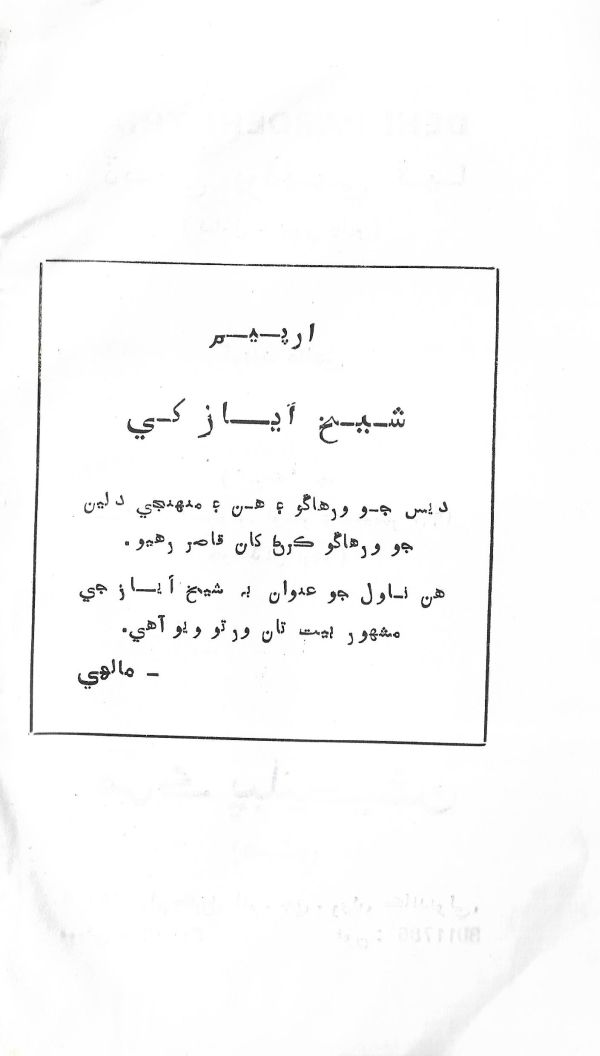 ارپيم
شيخ اَياز کي
ديس جو ورهاڱو ۽ هن ۽ منهنجي دلين
جو ورهاڱو ڪرڻ کان قاصر رهيو.
هن ناول جو عنوان بہ شيخ اَياز جي
مشهور بيت تان ورتو ويو آهي.
- مالهي